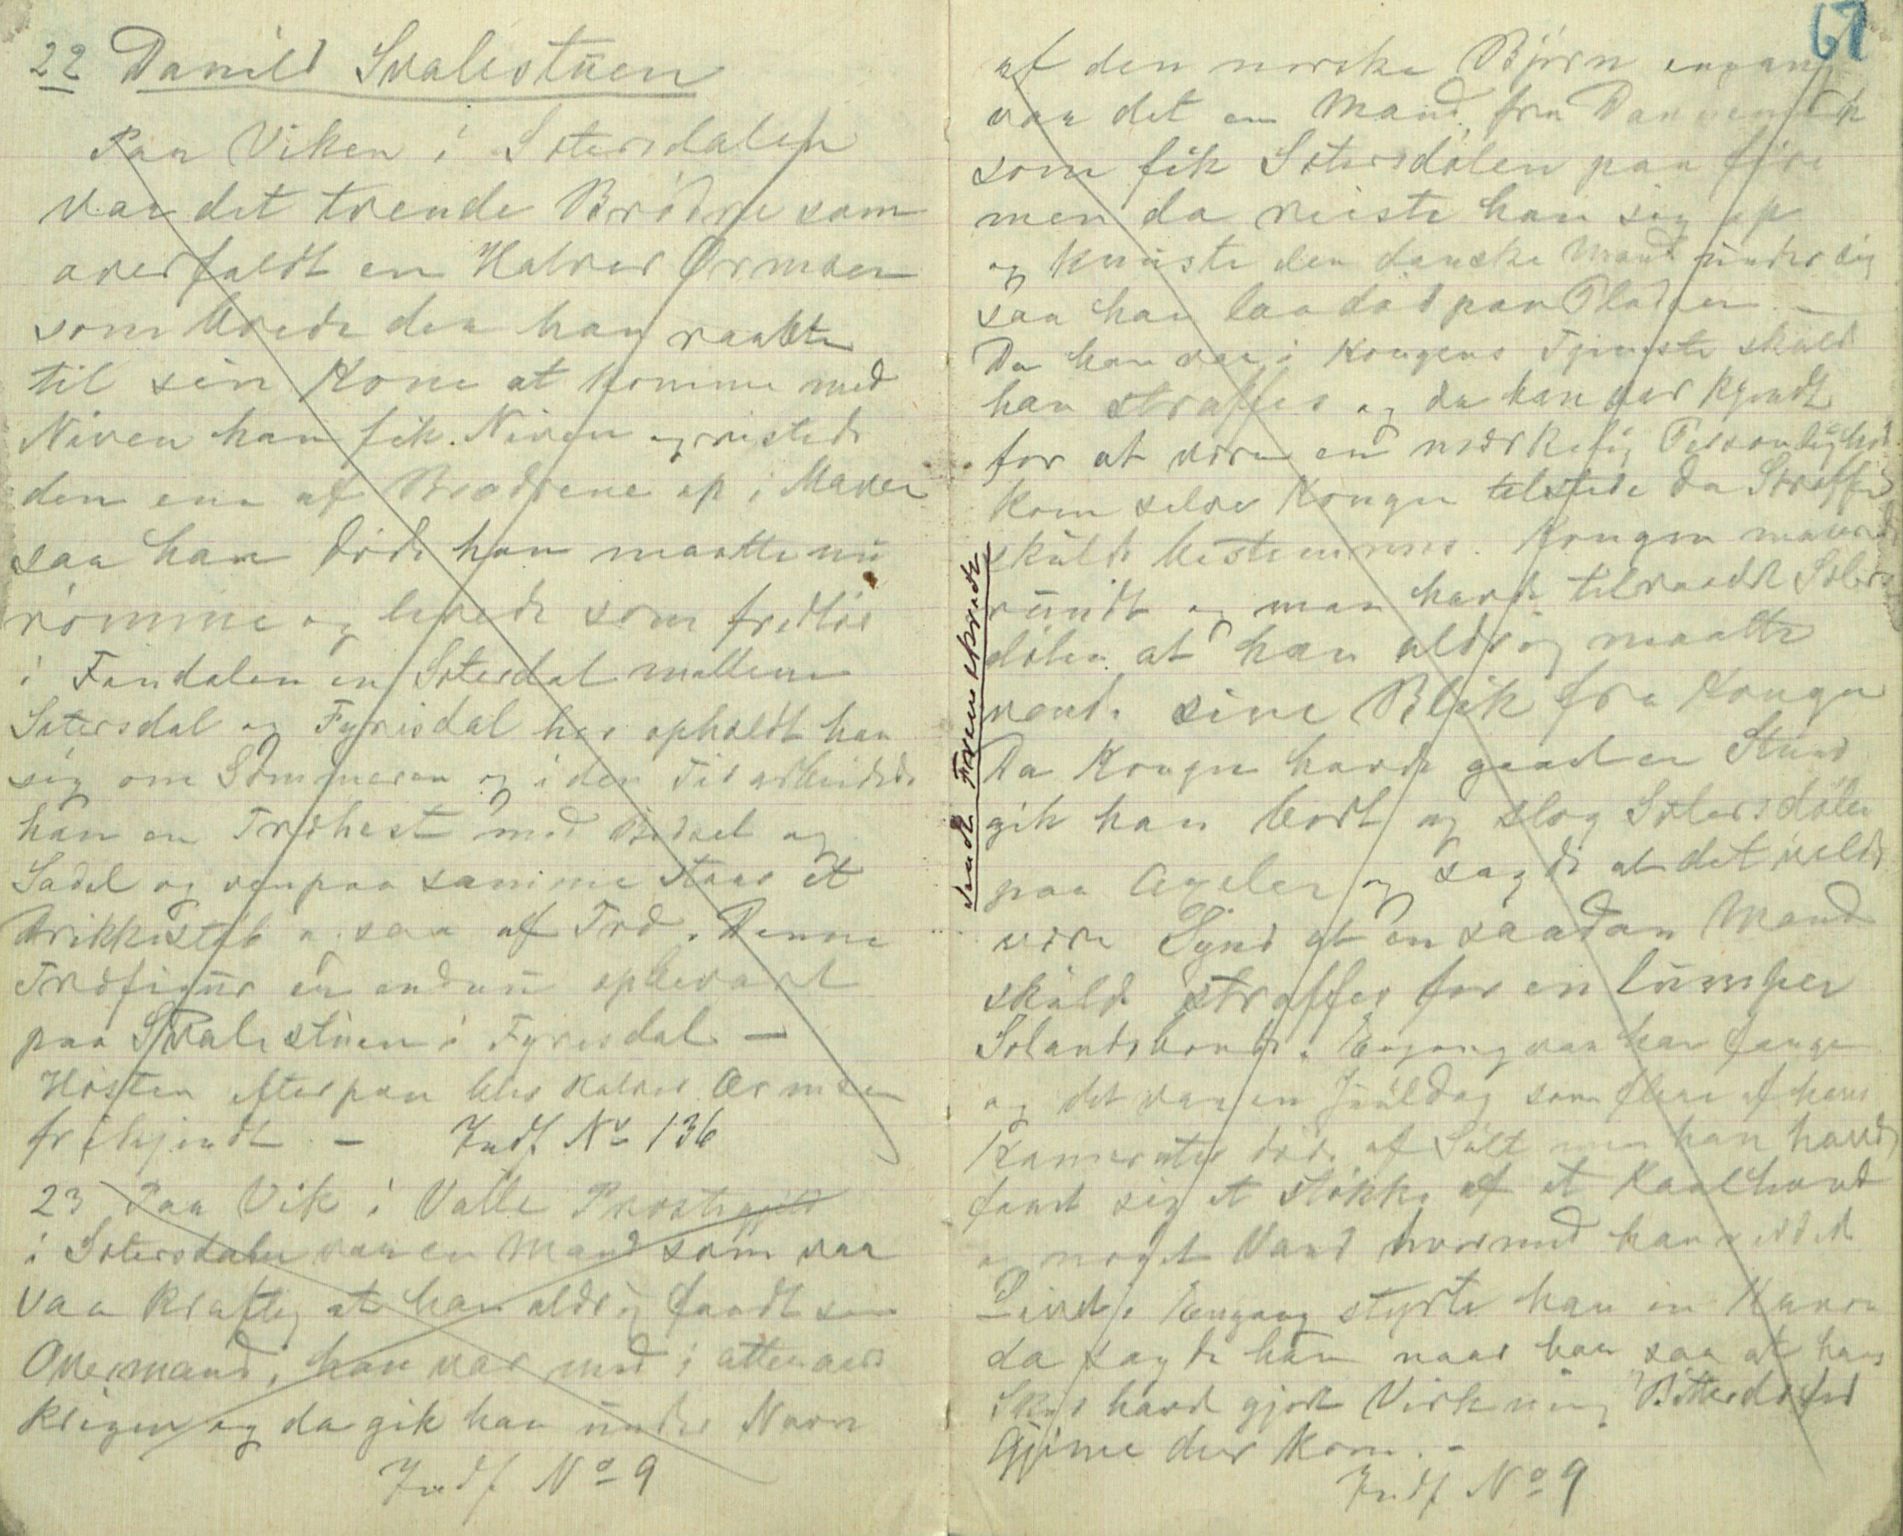 22 Daniel Svalestuen
Paa Viken i Sætersdalen
var det trende Brødre som
overfaldt en Halvor Ormsen
som boede der han raabte
til sin Kone at komme med
Niven han fik Niven og ristede
den ene af Brødrene op i Maven
saa han døde han maatte nu
rømme og levede som fredløs
i Findalen en Sæterdal mellem
Sætersdal og Fyrisdal her opholdt han
sig om Sommeren og i den Tid arbeidede
han en Træhest med Bidsel og
Sadel og ovenpaa samme staar et
Drikkestøb ogsaa af Træ. Denne
Træfigur er endnu opbevart
paa Svalestuen i Fyrisdal —
Høsten efterpaa blev Halvor Ormsen
frikjendt. — Indf No 136
23 Paa Vik i Valle Prestegjeld
i Sætersdalen var en Mand som var
saa kraftig at han aldrig fandt sin
Overmand, han var med i atten aars
krigen og da gik han under Navn
Indf No 9
67
af den norske Bjørn engang
var det en Mand fra Dannemark
som fik Sætersdølen paa
men da reiste han sig op
og knuste den danske Mand under sig
saa han laa død paa Pladsen —
Da han var i Kongens Tjeneste skulde
han straffes og da han var kjendt
for at være en mærkelig Personlighed
kom selve Kongen tilstede da Straffen
skulde bestemmes. Kongen
rundt og man havde tilraadt Sæters
dølen at han aldrig maatte
vende sine Blik fra Kongen
Da Kongen havde gaaet en Stund
gik han bort og slog Sætersdølen
paa Axelen og sagde at det vilde
være Synd at en saadan Mand
skulde straffes for en lumpen
Sølandsbonde. Engang var han fange
og det var en Juuldag som flere af hans
Kamerater døde af Sult men han havde
fundt sig et støkke af et Kaalhoved
og noget Vand hvormed han reddede
Livet. Engang styrte han en Kanon
da sagde han naar han saa at hans
Skud havde gjort Virkning "Bitterdøfed
Gjime der kom. —
Indf No 9
Sandt Fremskridt